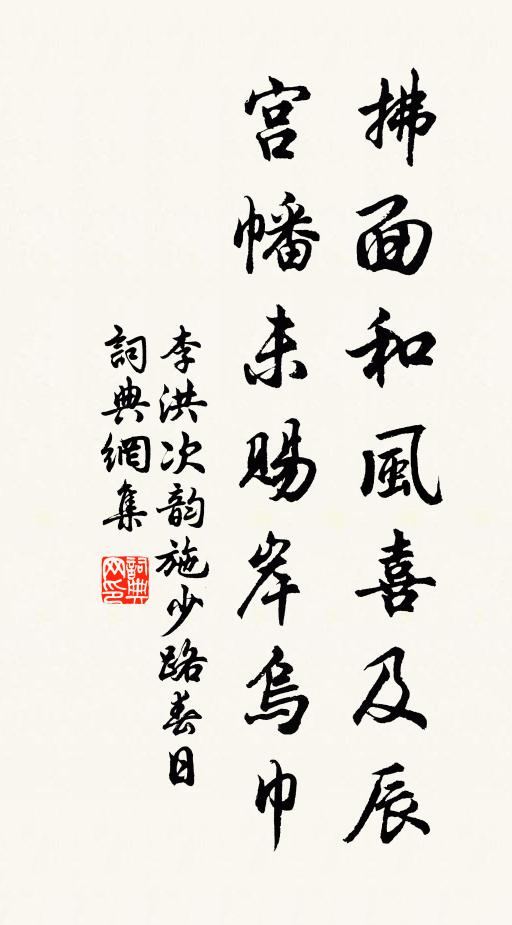 拂面和風喜及辰
宮幡未賜岸烏巾
李洪次韵施少路春日
詞典網集
詞典网印